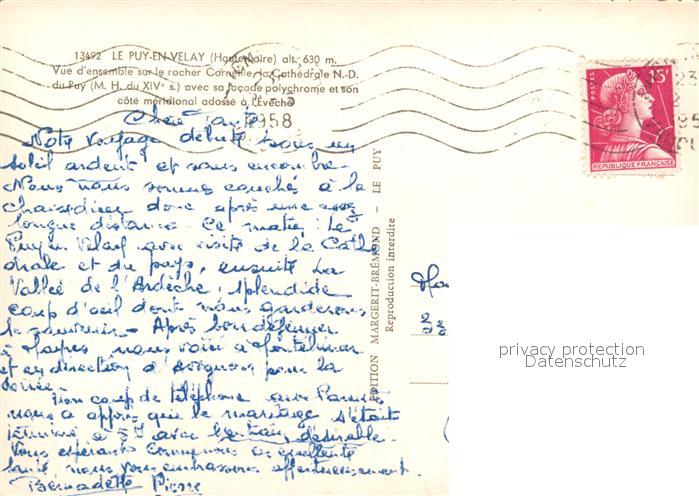 13492 LE PUY-EN-VELAY (Haute-Loire) alt. 630 m.
Vue d'ensemble sur le rocher Corneille, la Cathédrale N.-D.
du Puy (M. H. du XIVe s.) avec sa façade polychrome et son
côté méridional adossé à l'Évêché
1958
15F
POSTES
REPUBLIQUE FRANÇAISE
Chère Tante
Notre voyage débute sous un
soleil ardent et sans encombre.
Nous nous sommes couchés à la
chaise-dieu donc après une assez
longue distance. Ce matin : Le
Puy en Velay avec visite de la Cath
drale et du pays, ensuite La
Vallée de l'Ardèche, splendide
coup d'oeil dont nous garderons
le souvenir. Après bon déjeuner
à nous voici à Montélimar
et en direction d'Avignon pour la
soirée.
Mon coup de téléphone aux Parents
nous a appris que le mariage s'était
terminé à 5h avec désirable.
Vous espérant en excellente
santé, nous vous embrassons affectueusement.
Bernadette Pierre
EDITION MARGERIT-BRÉMOND - LE PUY
Reproduction interdite
privacy protection
Datenschutz